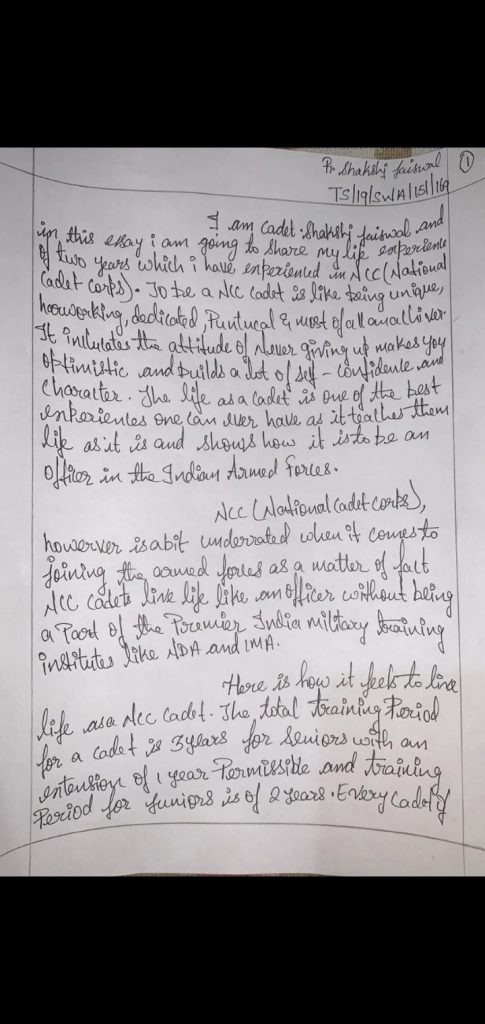 Pr Shakshi Jaiswal ①
TS/19/SWA/151/169
I am Cadet. Shakshi Jaiswal and
in this essay i am going to share my life experience
of two years which i have experienced in NCC (National
Cadet Corps). To be a NCC Cadet is like being unique,
dedicated, Puntucal & most of all an all
It inculcates the attitude of Never giving up makes you
optimistic and builds a lot of self-confidence and
character. The life as a cadet is one of the best
experiences one can ever have as it teaches them
life as it is and shows how it is to be an
Officer in the Indian Armed forces.
NCC (National Cadet Corps),
howerver is a bit underrated when it comes to
joining the armed forces as a matter of fact
NCC cadets live life like an officer without being
a Part of the Premier India military training
institutes like NDA and IMA.
Here is how it feels to live
life as a NCC Cadet. The total training Period
for a cadet is 3 years for Seniors with an
extension of 1 year Permissible and training
Period for Juniors is of 2 years. Every Cadet of